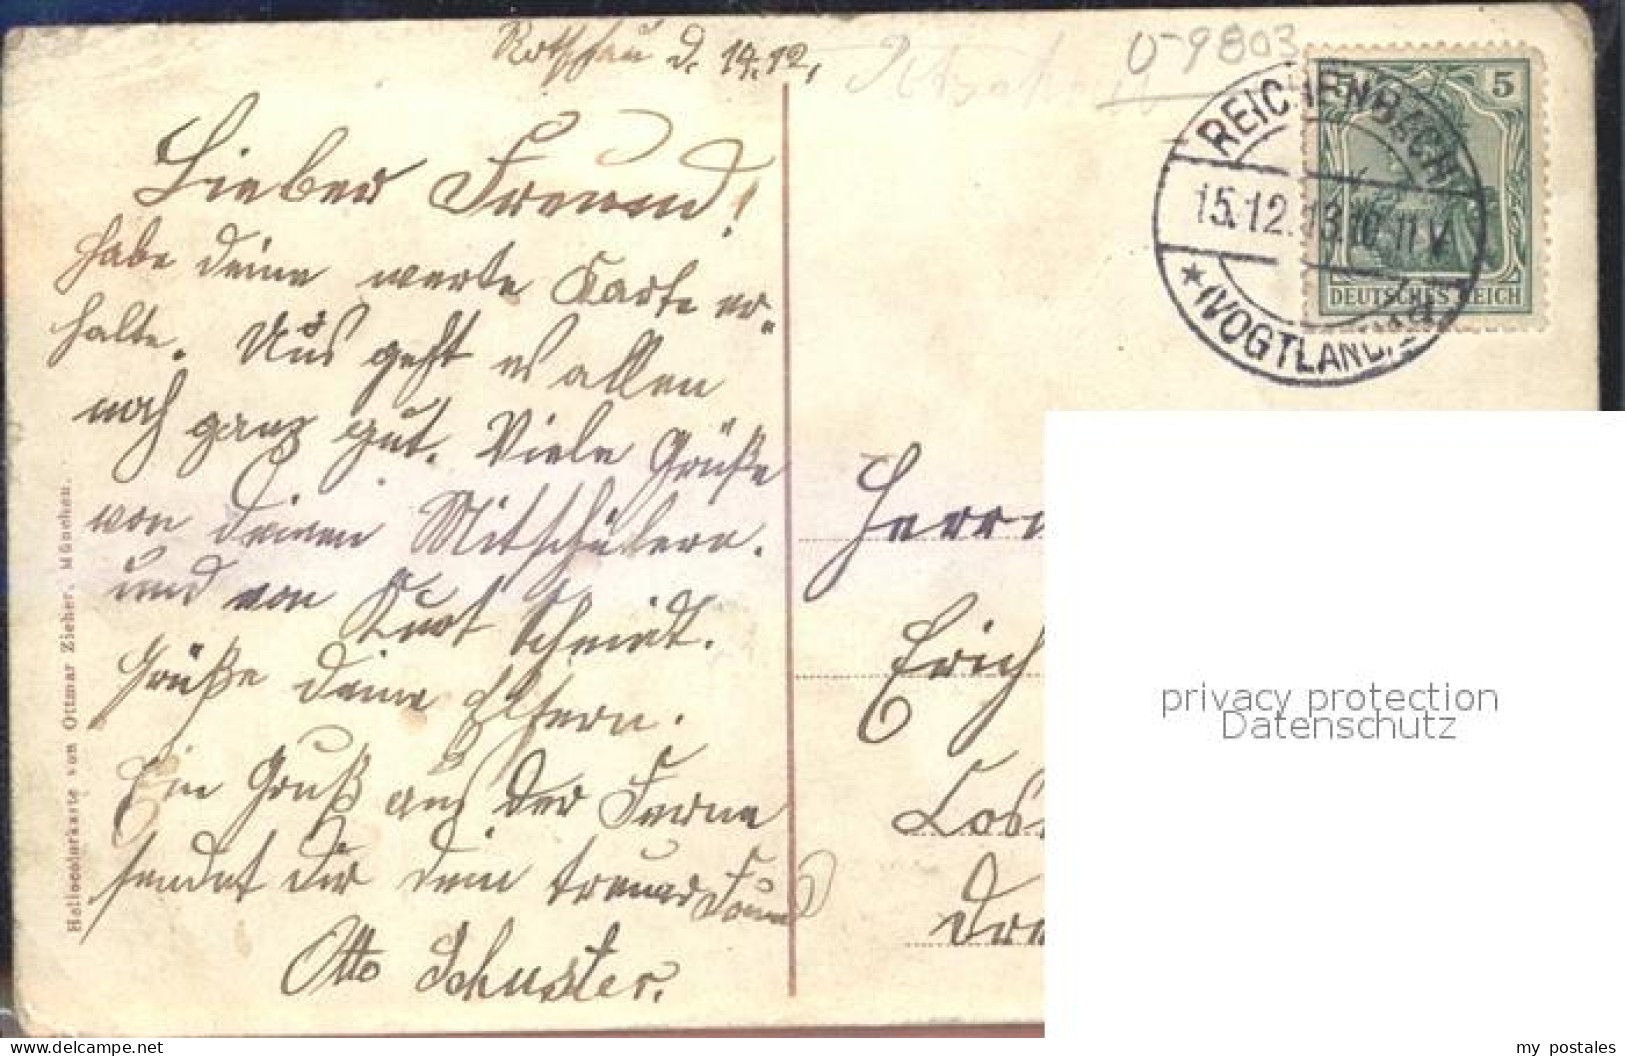 Rotschau d. 14.12,
Lieber Freund!
Habe deine werte Karte er-
halte. Uns geht es allen
noch ganz gut. Viele Grüße
von deinen Mitschülern.
und von Kurt Schmidt.
Grüße deine Eltern.
Ein Gruß aus der Ferne
sendet dir dein treuer Freund
Otto Schuster.
Heliocolorkarte von Ottmar Zieher, München.
U-9803
REICHENBACH
15.12.13.10-11V
(VOGTLAND)
5
DEUTSCHES REICH
Herrn
Erich
Dre
privacy protection
Datenschutz
www.delcampe.net
my_postales